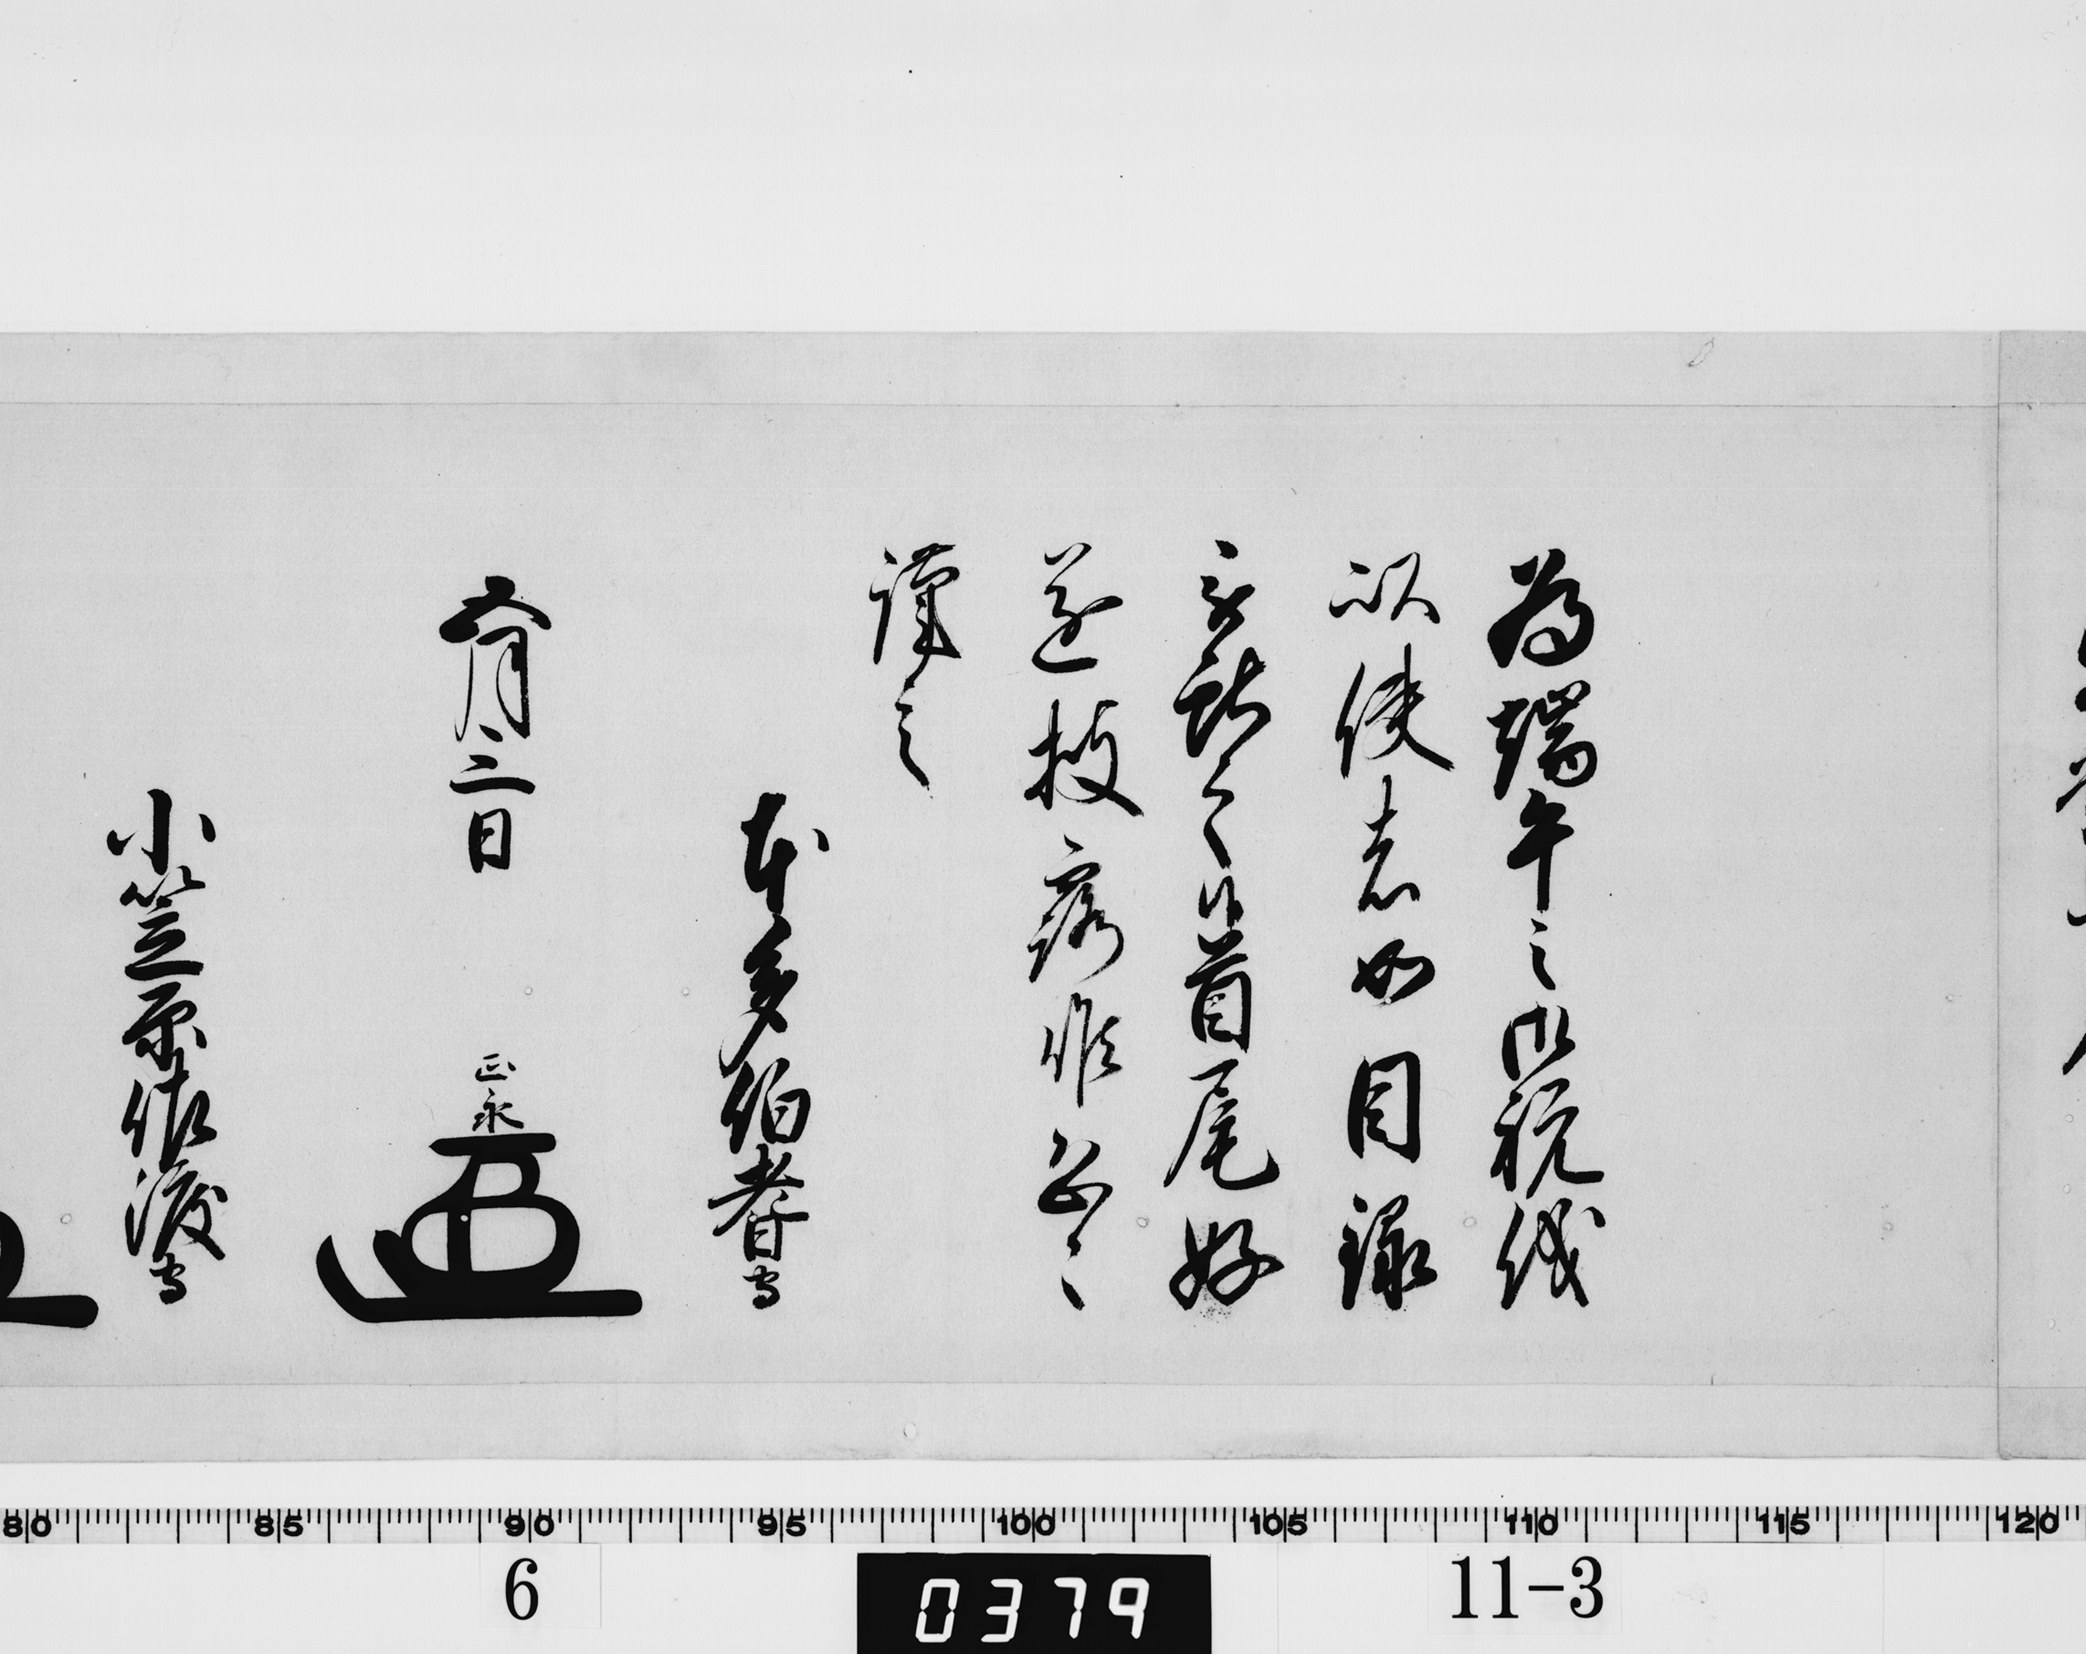 為端午之御祝儀
以使者如目録
被献之候首尾好
遂披露候恐々
謹言
本多伯耆守
五月三日 正永
小笠原佐渡守
80 85 90 95 100 105 110 115 120
6 0379 11-3